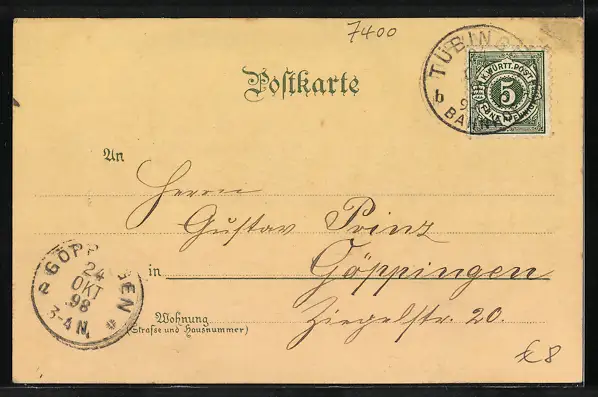 7400
Postkarte
TÜBINGEN
b
9
BAHNHOF
K. WÜRTT. POST
5
FÜNF PFENNIG
An
Herrn
Gustav Prinz
in Göppingen
Wohnung
(Strasse und Hausnummer)
Ziegelstr. 20.
GÖPPINGEN
a
24
OKT
98
3-4 N.
8